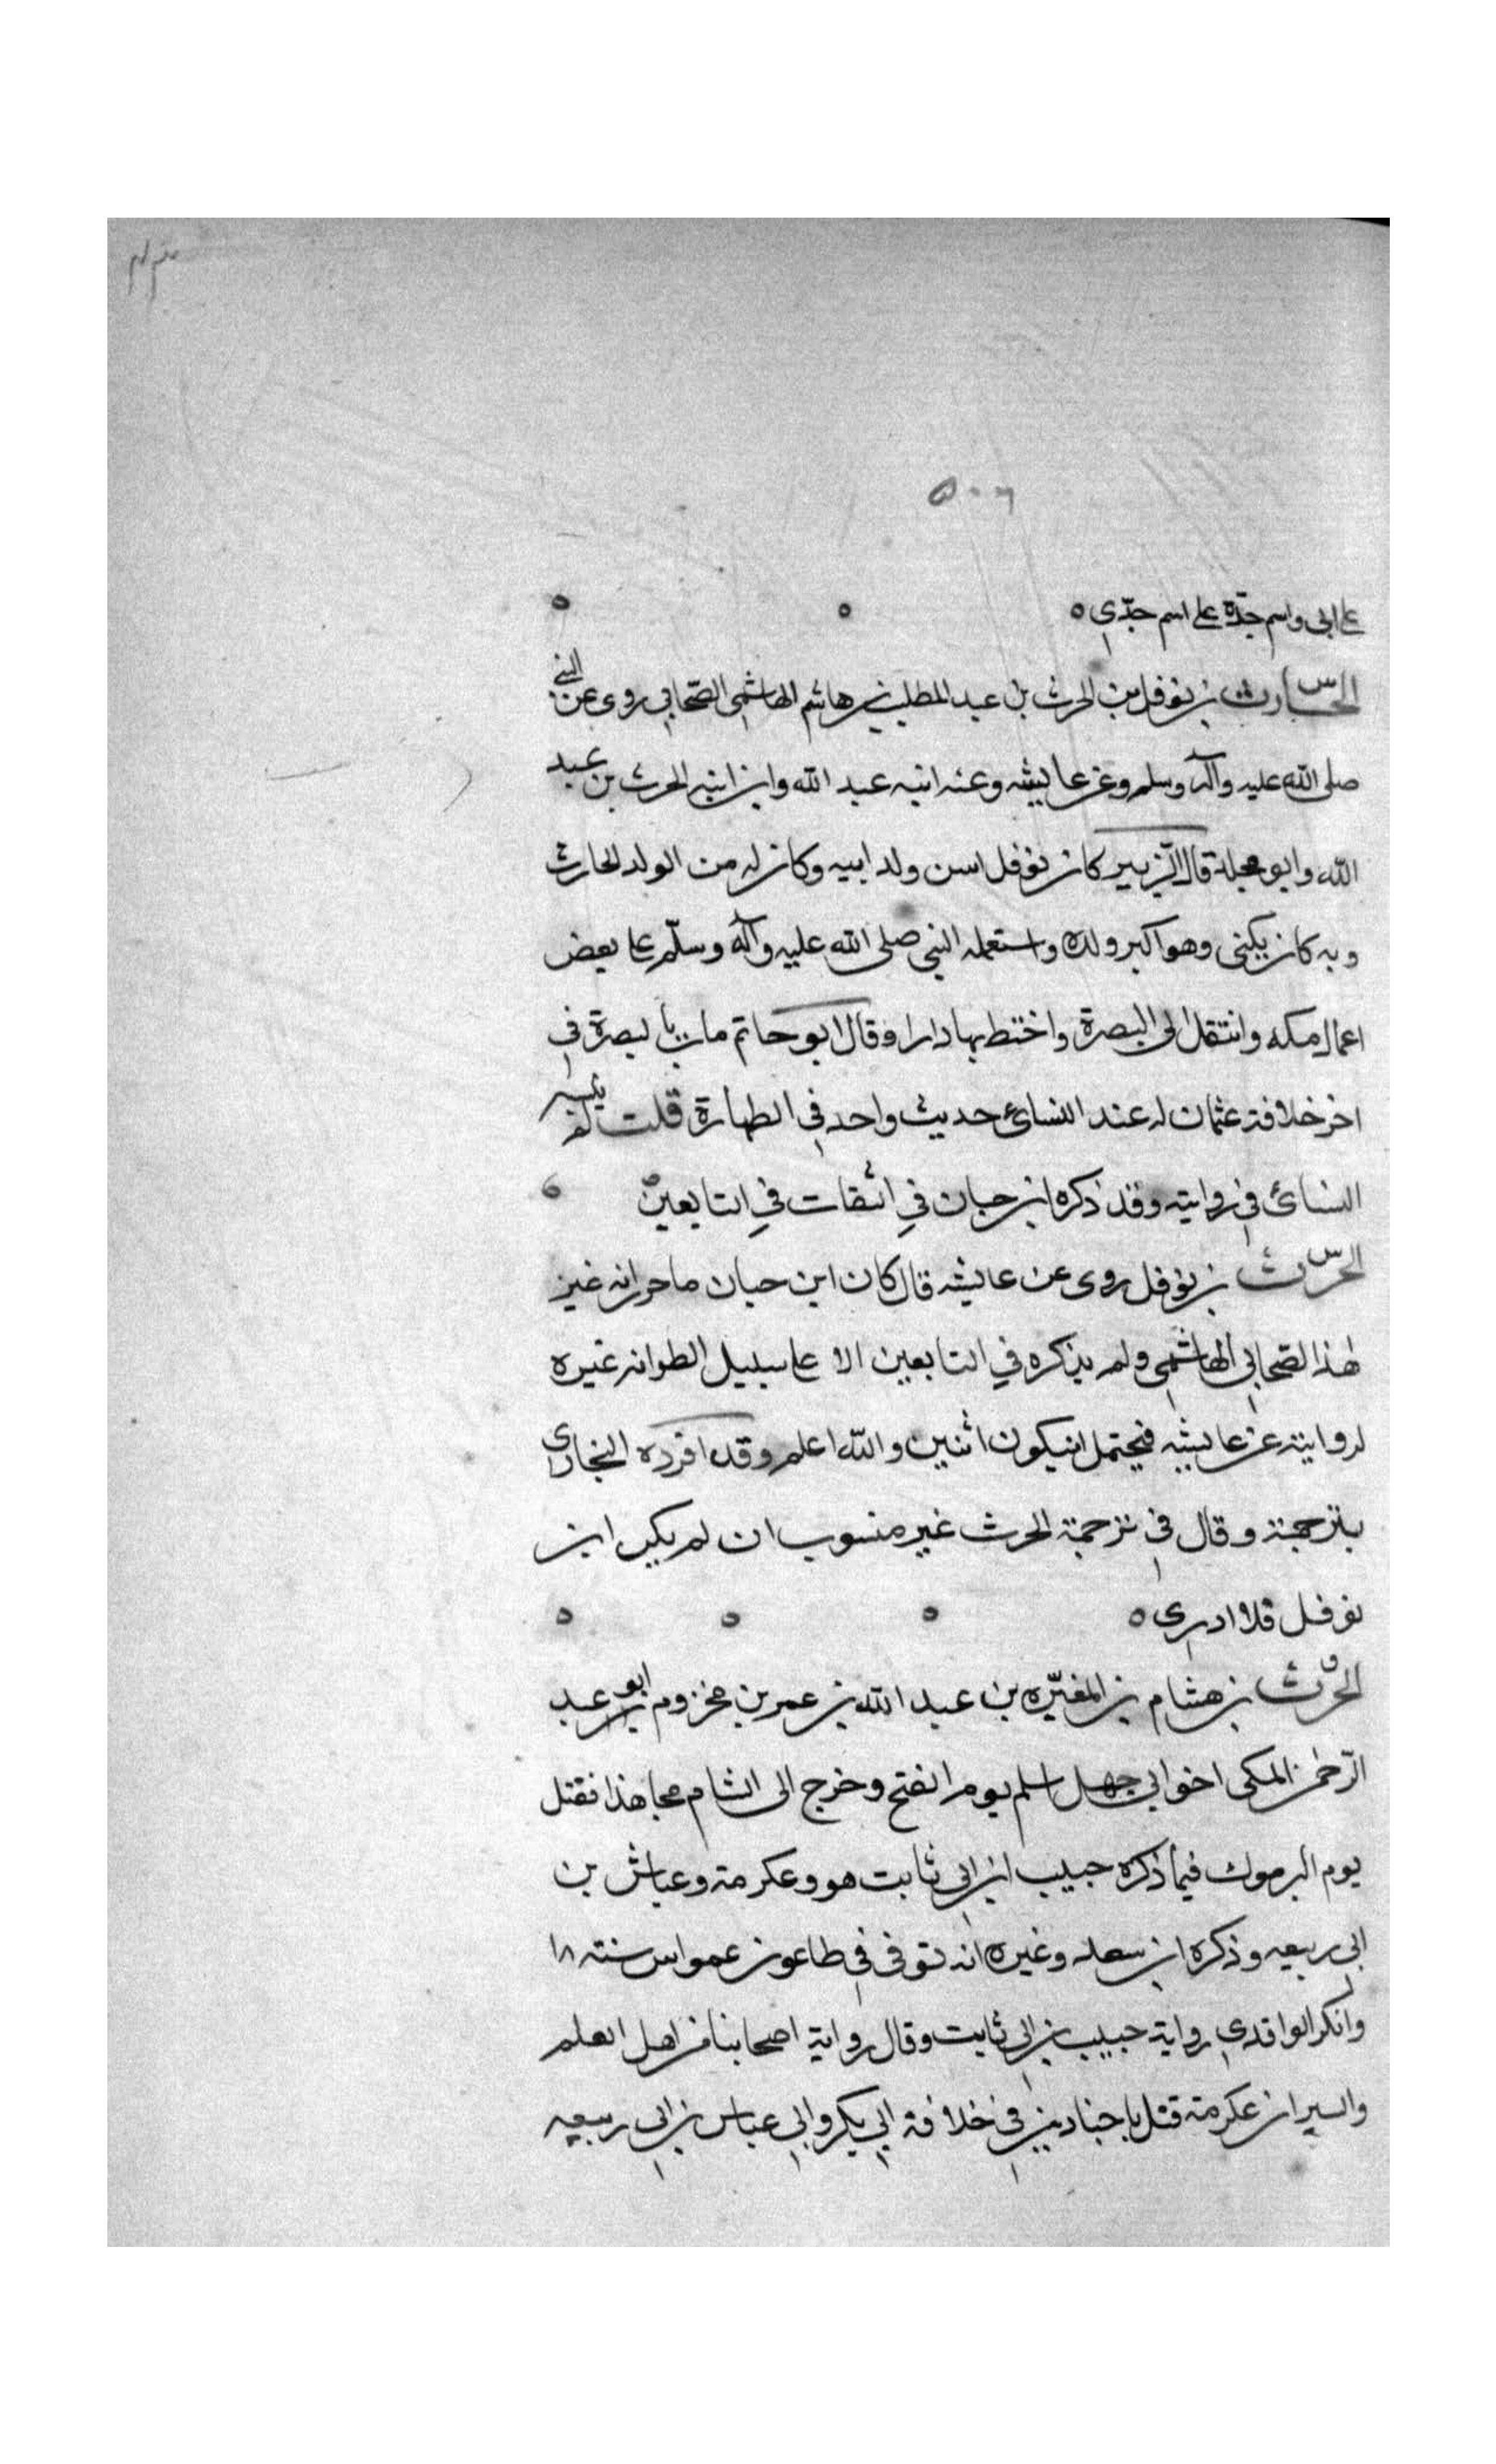 ٥٠٦
على ابى واسم جدّه على اسم جدّي ه
الحارث بن نوفل بن الحرث بن عبد المطلب بن هاشم الهاشمي الصّحابي روى عن النبي
صلى الله عليه وآله وسلم وعن عايشه وعنه ابنه عبد الله وابن ابنه الحرث بن عبد
الله وابو مجلز قال الزّبير كان نوفل اسن ولد ابيه وكان له من الولد الحارث
وبه كان يكنى وهو اكبر ولده واستعمله النبي صلى الله عليه وآله وسلّم على بعض
اعمال مكه وانتقل الى البصرة واختط بها دارا وقال ابو حاتم مات بالبصرة في
اخر خلافة عثمان له عند النسائ حديث واحد في الطهارة قلت لم ينسبه
النسائ في روايته وقد ذكره ابن حبان في الثقات في التابعين
الحرث بن نوفل روى عن عايشه قال كان ابن حبان ما حرر انه غير
هذا الصحابي الهاشمي ولم يذكره في التابعين الا على سبيل الظن انه غيره
لروايته عن عايشه فيحتمل ان يكون اثنين والله اعلم وقد افرده البخاري
بترجمة وقال في ترجمة الحرث غير منسوب ان لم يكن ابن
نوفل فلا ادري ه
الحرث بن هشام بن المغيّره بن عبد الله بن عمر بن مخزوم ابو عبد
الرّحمن المكى اخو ابي جهل اسلم يوم الفتح وخرج الى الشام مجاهذا فقتل
يوم اليرموك فيما ذكره حبيب ابن ابي ثابت هو وعكرمة وعياش بن
ابى ربيعه وذكره ابن سعد وغيره انه توفى في طاعون عمواس سنة ١٨
وانكر الواقدي رواية حبيب بن ابي ثابت وقال رواية اصحابنا من اهل العلم
والسير ان عكرمة قتل باجنادين في خلافة ابي بكر وابي عباس بن ابي ربيعه